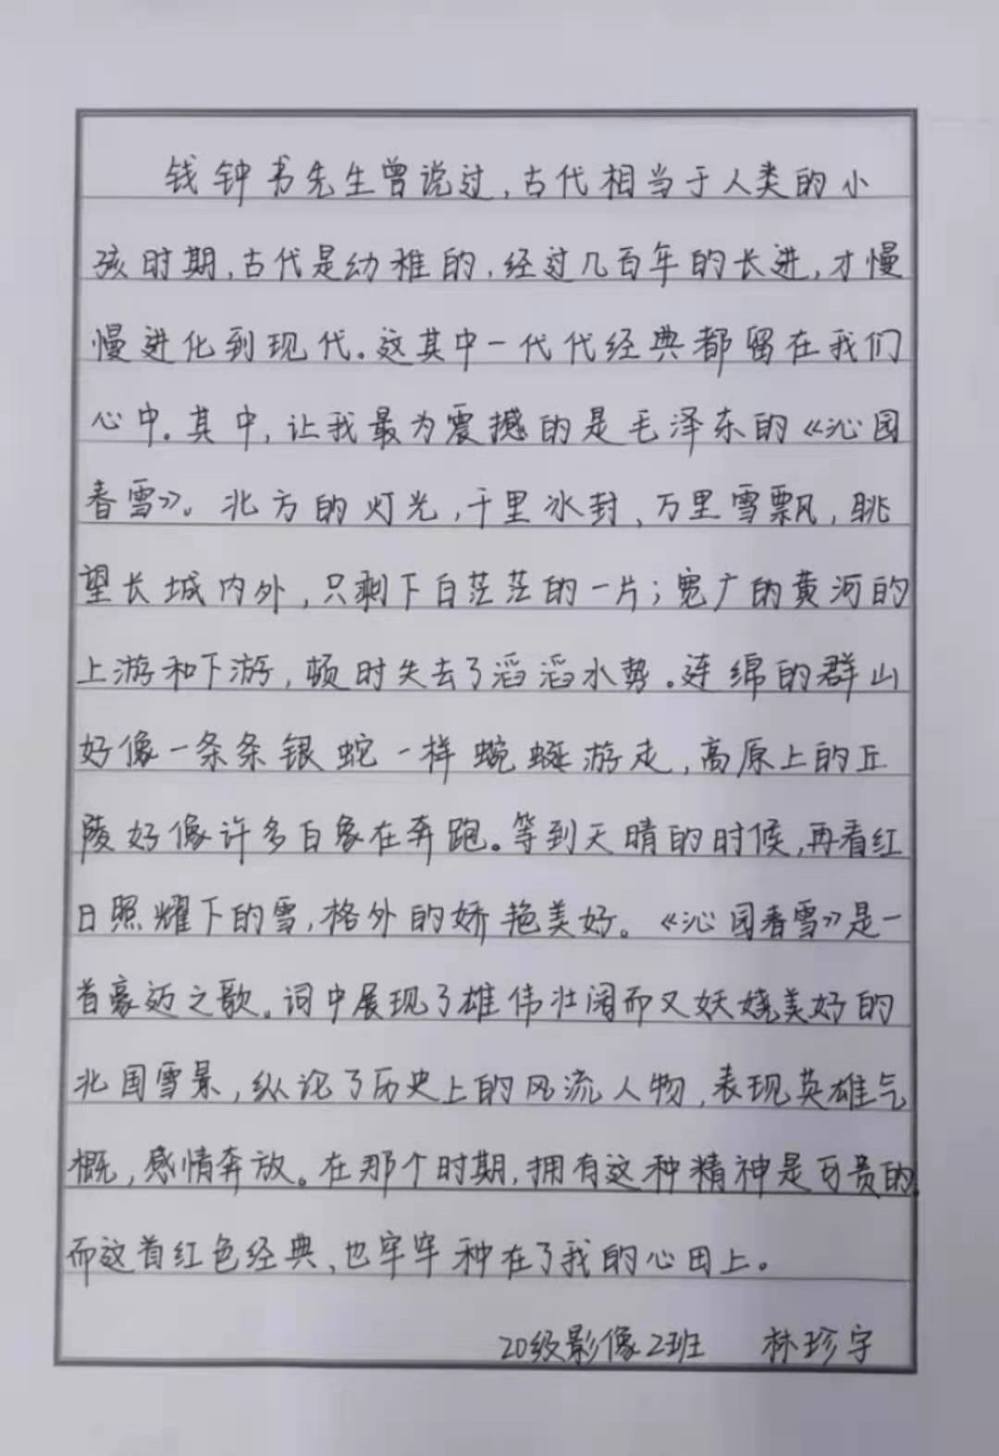 钱钟书先生曾说过,古代相当于人类的小
孩时期,古代是幼稚的,经过几百年的长进,才慢
慢进化到现代。这其中一代代经典都留在我们
心中。其中,让我最为震撼的是毛泽东的《沁园
春雪》。北方的灯光,千里冰封,万里雪飘,眺
望长城内外,只剩下白茫茫的一片;宽广的黄河的
上游和下游,顿时失去了滔滔水势。连绵的群山
好像一条条银蛇一样蜿蜒游走,高原上的丘
陵好像许多白象在奔跑。等到天晴的时候,再看红
日照耀下的雪,格外的娇艳美好。《沁园春雪》是一
首豪迈之歌。词中展现了雄伟壮阔而又妖娆美好的
北国雪景,纵论了历史上的风流人物,表现英雄气
概,感情奔放。在那个时期,拥有这种精神是可贵的,
而这首红色经典,也牢牢种在了我的心田上。
20级影像2班 林珍宇